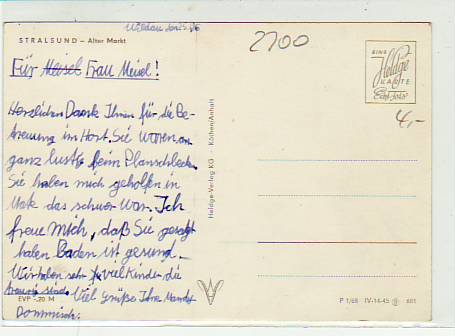 Wildau
STRALSUND – Alter Markt
2700
EINE
Heldge
KARTE
Echt-Foto
4,-
Für Meisel Frau Meisel!
Herzlichen Dank Ihnen für die Be-
treuung im Hort. Sie waren
ganz lustig beim Planschbecken
Sie haben mich geholfen in
Mate das schwer war. Ich
freue mich, daß Sie gesagt
haben Baden ist gesund.
Wir haben sehr viel Kinder die
traurig sind. Viel Grüße Ihre
Dominic.
EVP -.20 M
Heldge-Verlag KG · Köthen/Anhalt
P 1/66 IV-14-45